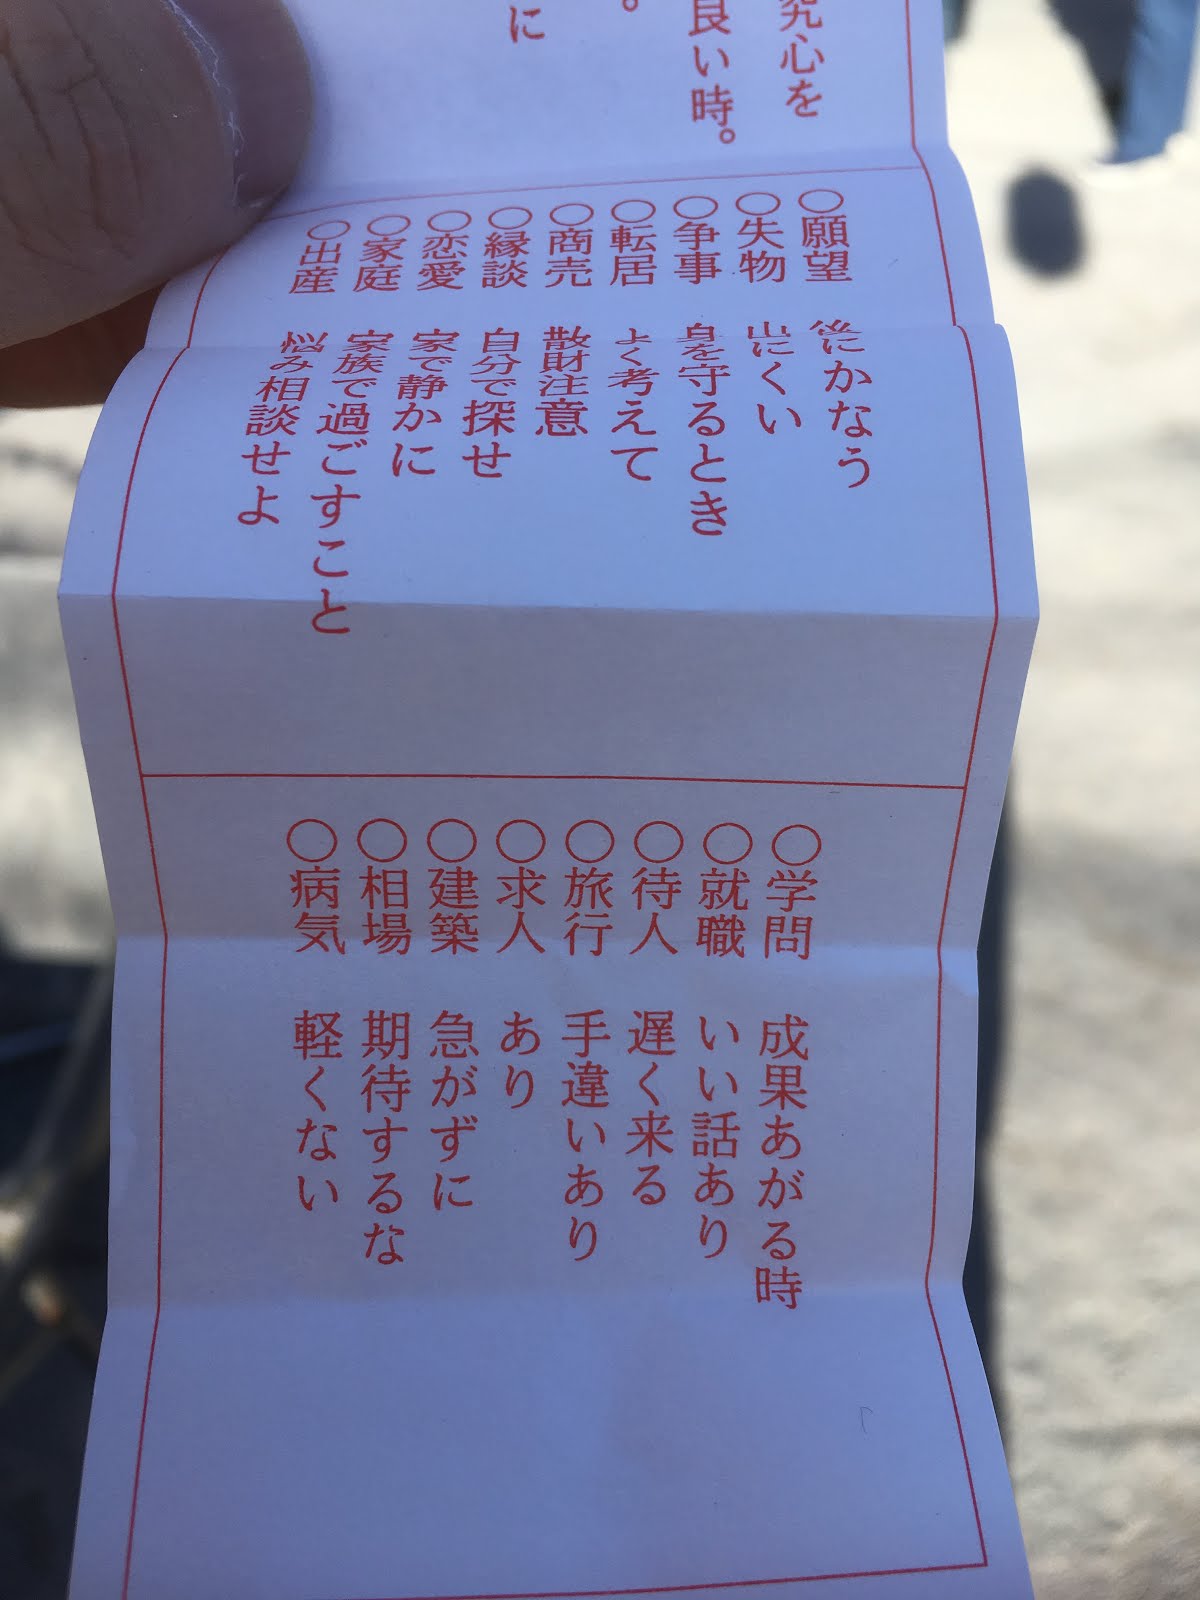 究心を
良い時。
。
に
○願望 後にかなう
○失物 出にくい
○争事 身を守るとき
○転居 よく考えて
○商売 散財注意
○縁談 自分で探せ
○恋愛 家で静かに
○家庭 家族で過ごすこと
○出産 悩み相談せよ
○学問 成果あがる時
○就職 いい話あり
○待人 遅く来る
○旅行 手違いあり
○求人 あり
○建築 急がずに
○相場 期待するな
○病気 軽くない